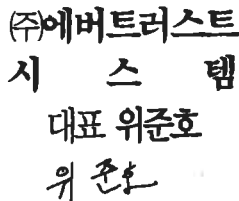 ㈜에버트러스트
시 스 템
대표 위준호
위 준호